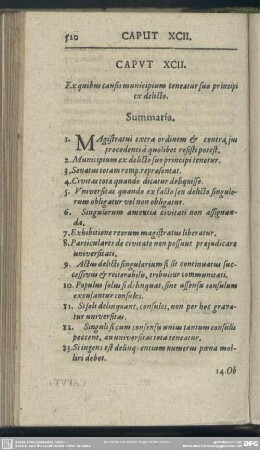 520 CAPUT XCII.
CAPVT XCII.
Ex quibus causis municipium teneatur suo principi
ex delicto.
Summaria.
1. MAgistratui extra ordinem & contra jus
procedenti à quolibet resisti potest.
2. Municipium ex delicto suo principi tenetur.
3. Senatus totam remp. repræsentat.
4. Civitas tota quando dicatur deliquisse.
5. Vniversitas quando ex facto seu delicto singulo-
rum obligatur vel non obligatur.
6. Singularum amentia civitati non assignan-
da.
7. Exhibitione reorum magistratus liberatur.
8. Particulares de civitate non possunt præjudicare
universitati.
9. Actus delicto singularium si sit continuatus suc-
cessivus & reiterabilis, tribuitur communitati.
10. Populus solus si delinquat, sine assensu consulum
excusantur consules.
11. Si soli delinquant, consules, non per hoc grava-
tur universitas.
12. Singuli si cum consensu unius tantum consulis
peccent, an universitas tota teneatur.
13. Si ingens est delinquentium numerus pœna mol-
liri debet.
14. Ob